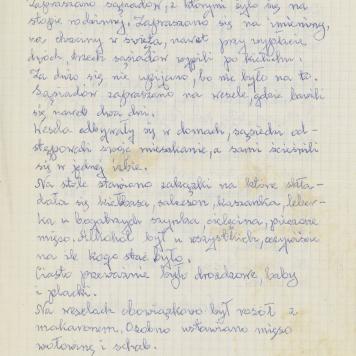 Zapraszano sąsiadów, z którymi żyło się na
stopie rodzinnej. Zapraszano się na imieniny,
na chrzciny w święta, nawet przy wypłacie
dwóch, trzech sąsiadów wypili po kielichu.
Za dużo się nie upijano, bo nie było na to.
Sąsiadów zapraszano na wesele, gdzie bawili
się nawet dwa dni.
Wesela odbywały się w domach, sąsiedzi od-
stępowali swoje mieszkanie, a sami ścieśnili
się w jednej izbie.
Na stole stawiano zakąski na które skła-
dała się kiełbasa, salceson, kaszanka, leber-
ka u bogatszych szynka, cielęcina, pieczone
mięso. Alkohol był u wszystkich, oczywiście
na ile kogo stać było.
Ciasto przeważnie było drożdżowe, baby
i placki.
Na weselach obowiązkowo był rosół z
makaronem. Osobno ustawiano mięso
wołowinę i schab.